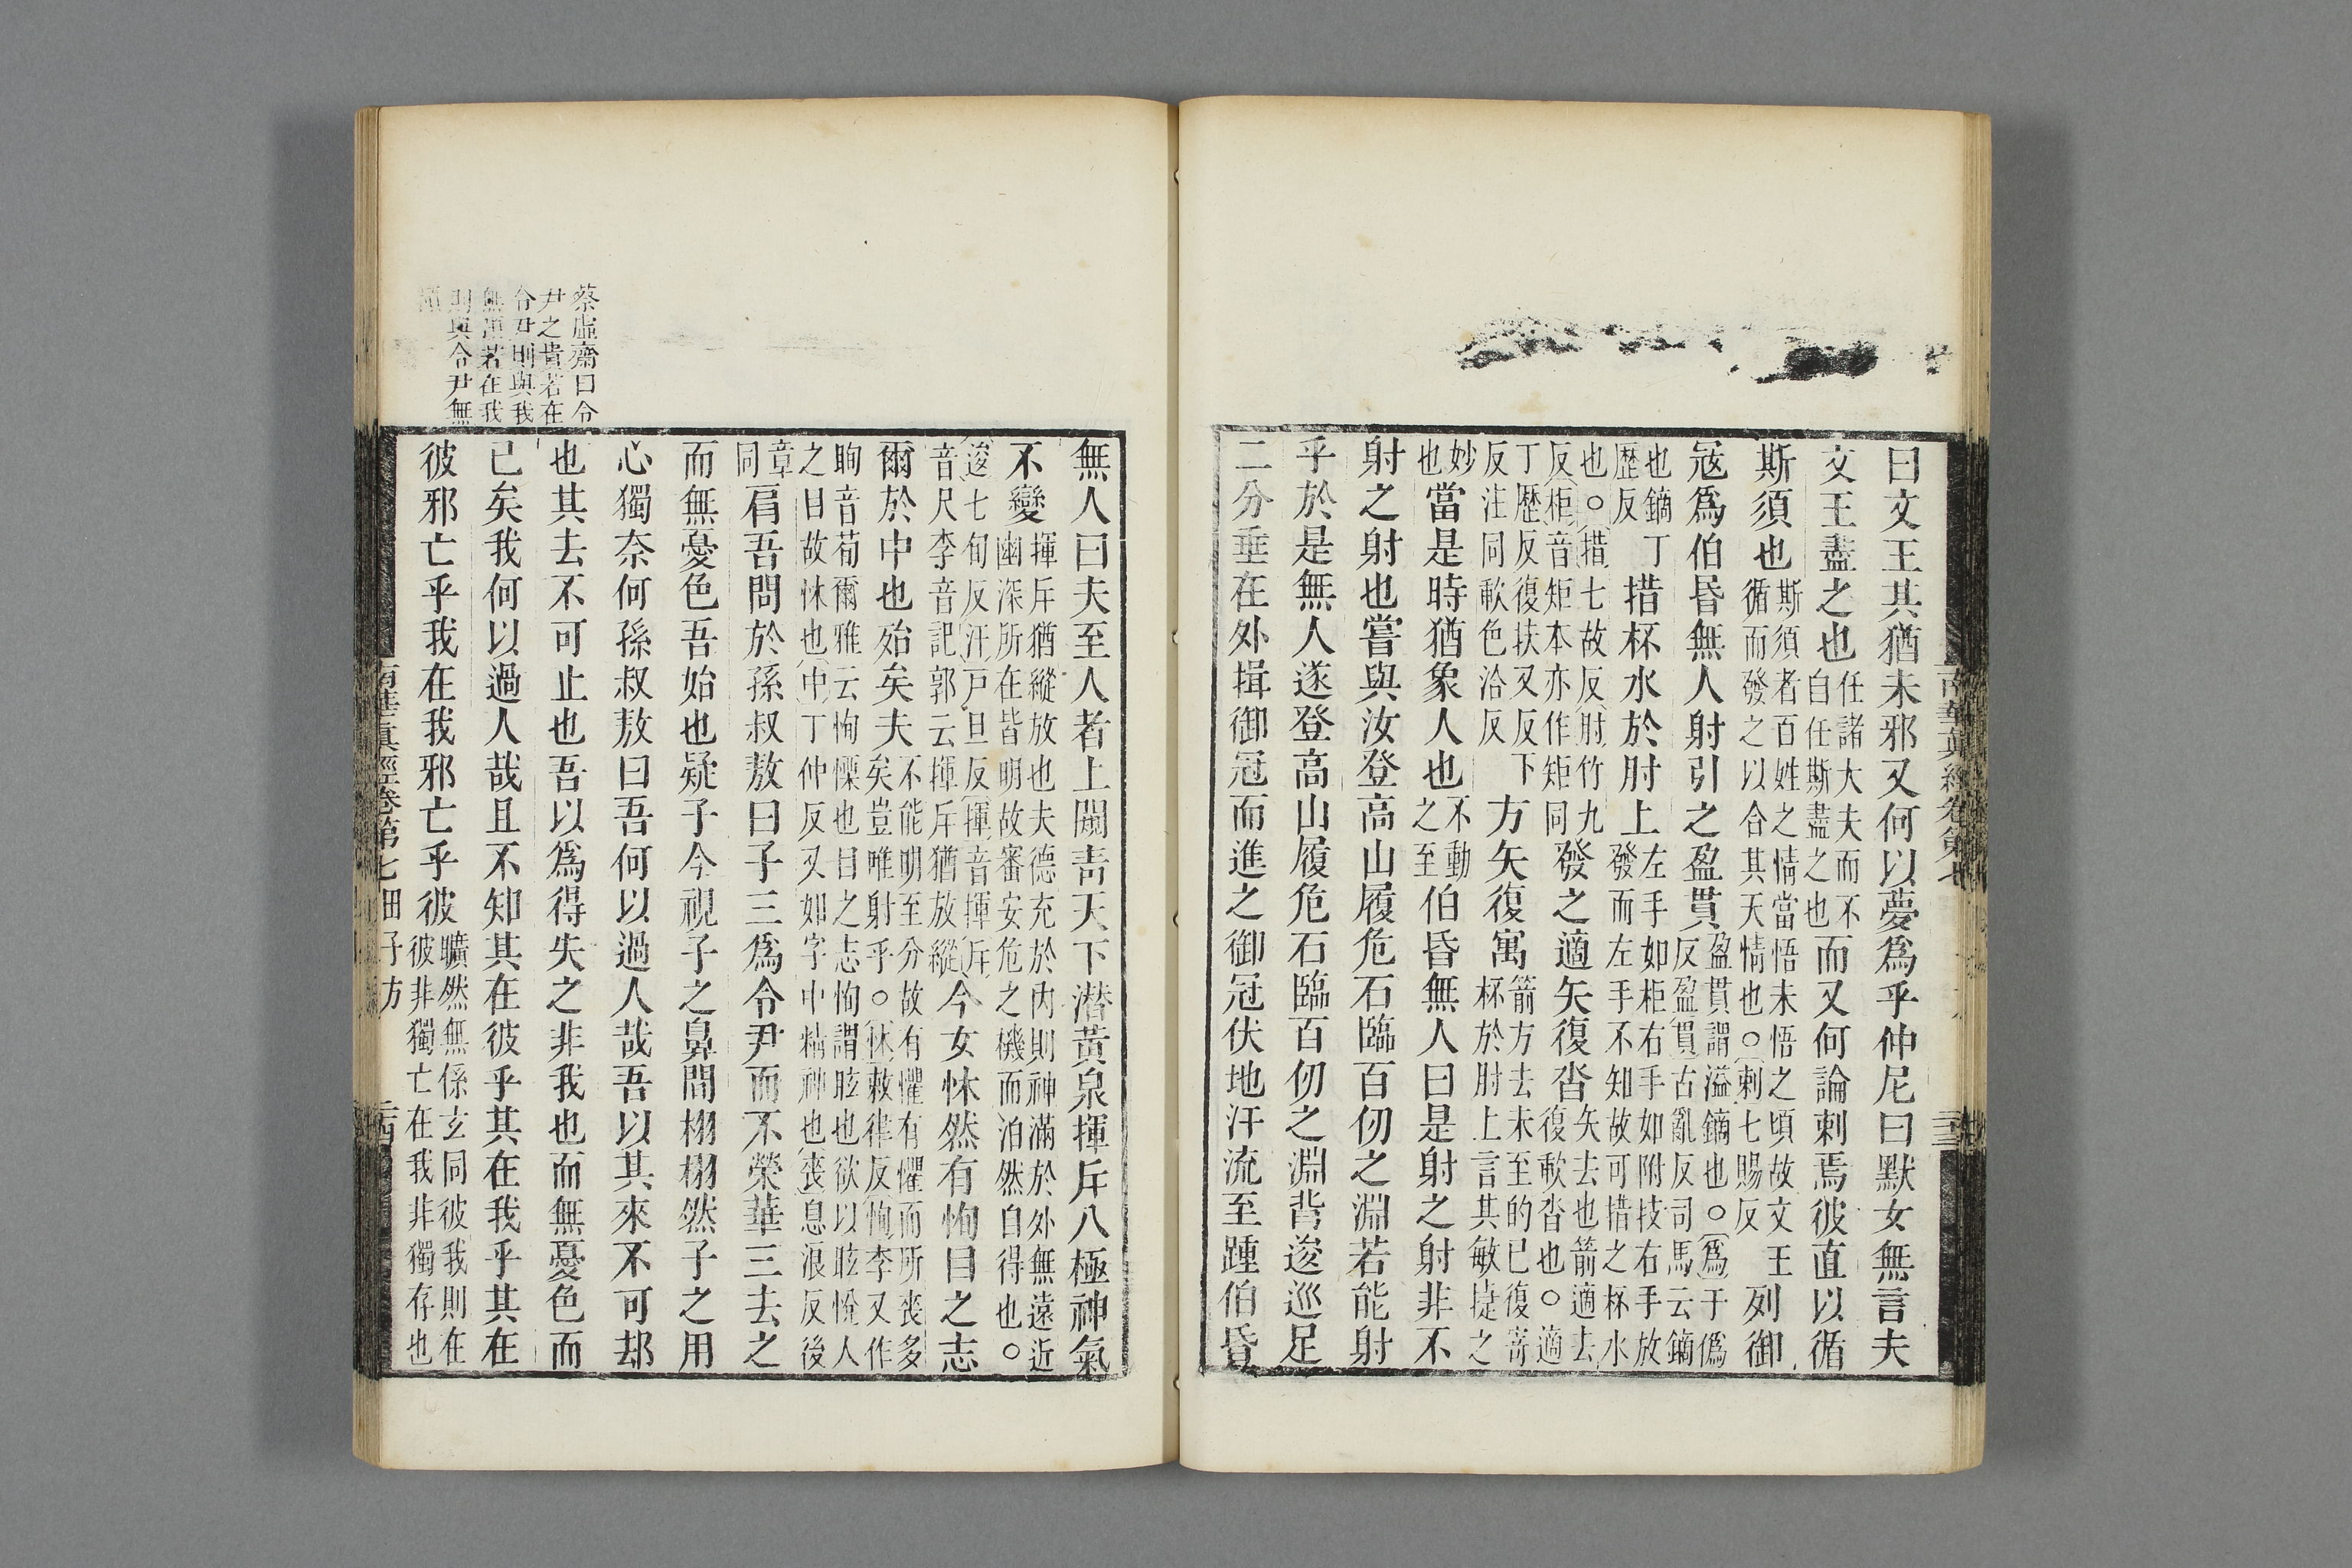 曰文王其猶未邪又何以夢爲乎仲尼曰默女無言夫
文王盡之也任諸大夫而不自任斯盡之也而又何論刺焉彼直以循
斯須也斯須者百姓之情當悟未悟之頃故文王循而發之以合其天情也○刺七賜反列御
寇爲伯昏無人射引之盈貫盈貫謂溢鏑也○爲于僞反盈貫古亂反司馬云鏑
也鏑丁歷反措杯水於肘上左手如柜右手如附技右手放發而左手不知故可措之杯水
也○措七故反肘竹九反柜音矩本亦作矩同發之適矢復沓矢去也箭適去復歃沓也○適
丁歷反復扶又反下反注同歃色洽反方矢復寓箭方去未至的已復寄杯於肘上言其敏捷之
妙也當是時猶象人也不動之至伯昏無人曰是射之射非不
射之射也嘗與汝登高山履危石臨百仞之淵若能射
乎於是無人遂登高山履危石臨百仞之淵背逡巡足
二分垂在外揖御冦而進之御冦伏地汗流至踵伯昏
南華真經卷第七
無人曰夫至人者上闚靑天下潜黃泉揮斥八極神氣
不變揮斥猶縱放也夫德充於內則神滿於外無遠近幽深所在皆明故審安危之機而泊然自得也○
逡七旬反汗戸旦反揮音揮斥音尺李音記郭云揮斥猶放縱今女怵然有恂目之志
爾於中也殆矣夫不能明至分故有懼有懼而所丧多矣豈唯射乎○怵敕律反恂李又作
眴音荀爾雅云恂慄也目之志恂謂眩也欲以眩恱人之目故怵也中丁仲反又如字中精神也丧息浪反後
章同肩吾問於孫叔敖曰子三爲令尹而不榮華三去之
而無憂色吾始也疑子今視子之鼻間栩栩然子之用
心獨奈何孫叔敖曰吾何以過人哉吾以其來不可却
也其去不可止也吾以爲得失之非我也而無憂色而
已矣我何以過人哉且不知其在彼乎其在我乎其在
彼邪亡乎我在我邪亡乎彼曠然無係玄同彼我則在彼非獨亡在我非獨存也
南華真經卷第七田子方
蔡虛齋曰令
尹之貴若在
令尹則與我
無與若在我
則與令尹無